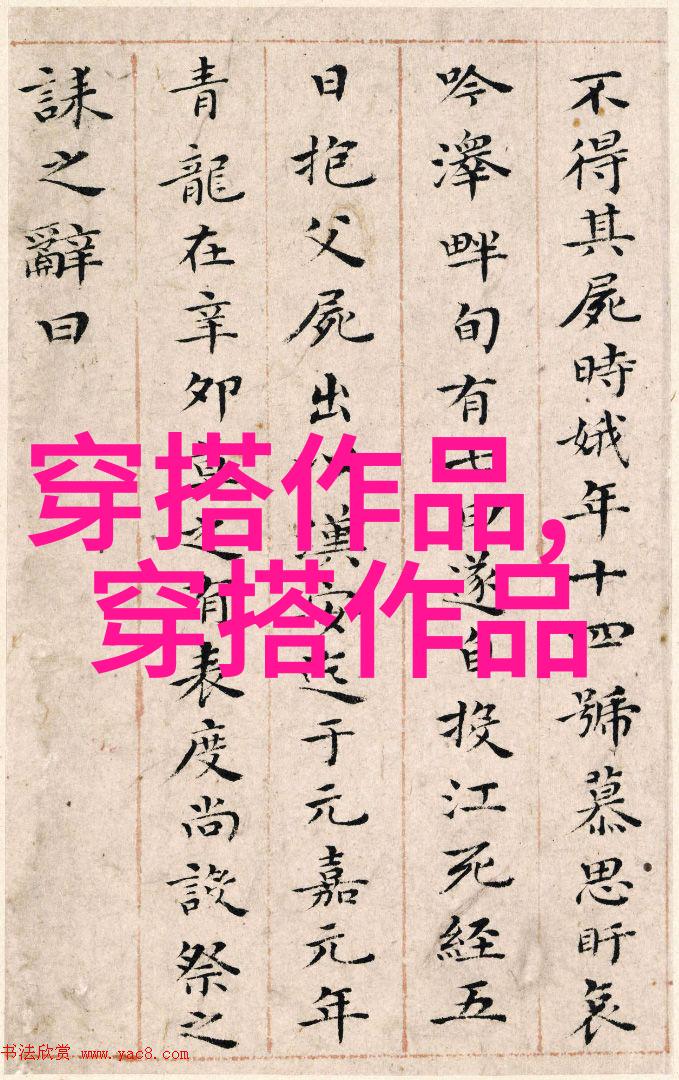 不得其屍時娥年十四號慕思盱哀
吟澤畔旬有七日遂自投江死經五
日抱父屍出以漢安迄于元嘉元年
青龍在辛卯莫之有表度尚設祭之
誄之辭曰
穿搭作品,
穿搭作品
书法欣赏 www.yac8.com